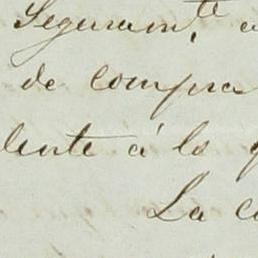 Seguram.te
de compra
lente á lo
La c